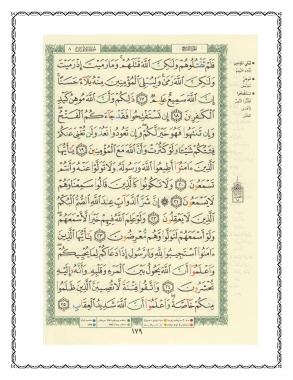 فَلَمْ تَقْتُلُوهُمْ وَلَٰكِنَّ ٱللَّهَ قَتَلَهُمْ وَمَا رَمَيْتَ إِذْ رَمَيْتَ
وَلَٰكِنَّ ٱللَّهَ رَمَىٰ وَلِيُبْلِيَ ٱلْمُؤْمِنِينَ مِنْهُ بَلَآءً حَسَنًا
إِنَّ ٱللَّهَ سَمِيعٌ عَلِيمٌ ١٧ ذَٰلِكُمْ وَأَنَّ ٱللَّهَ مُوهِنُ كَيْدِ
ٱلْكَٰفِرِينَ ١٨ إِن تَسْتَفْتِحُوا۟ فَقَدْ جَآءَكُمُ ٱلْفَتْحُ
وَإِن تَنتَهُوا۟ فَهُوَ خَيْرٌ لَّكُمْ وَإِن تَعُودُوا۟ نَعُدْ وَلَن تُغْنِيَ عَنكُمْ
فِئَتُكُمْ شَيْـًٔا وَلَوْ كَثُرَتْ وَأَنَّ ٱللَّهَ مَعَ ٱلْمُؤْمِنِينَ ١٩ يَٰٓأَيُّهَا
ٱلَّذِينَ ءَامَنُوٓا۟ أَطِيعُوا۟ ٱللَّهَ وَرَسُولَهُۥ وَلَا تَوَلَّوْا۟ عَنْهُ وَأَنتُمْ
تَسْمَعُونَ ٢٠ وَلَا تَكُونُوا۟ كَٱلَّذِينَ قَالُوا۟ سَمِعْنَا وَهُمْ
لَا يَسْمَعُونَ ٢١ إِنَّ شَرَّ ٱلدَّوَآبِّ عِندَ ٱللَّهِ ٱلصُّمُّ ٱلْبُكْمُ
ٱلَّذِينَ لَا يَعْقِلُونَ ٢٢ وَلَوْ عَلِمَ ٱللَّهُ فِيهِمْ خَيْرًا لَّأَسْمَعَهُمْ
وَلَوْ أَسْمَعَهُمْ لَتَوَلَّوا۟ وَّهُم مُّعْرِضُونَ ٢٣ يَٰٓأَيُّهَا ٱلَّذِينَ
ءَامَنُوا۟ ٱسْتَجِيبُوا۟ لِلَّهِ وَلِلرَّسُولِ إِذَا دَعَاكُمْ لِمَا يُحْيِيكُمْ
وَٱعْلَمُوٓا۟ أَنَّ ٱللَّهَ يَحُولُ بَيْنَ ٱلْمَرْءِ وَقَلْبِهِۦ وَأَنَّهُۥٓ إِلَيْهِ
تُحْشَرُونَ ٢٤ وَٱتَّقُوا۟ فِتْنَةً لَّا تُصِيبَنَّ ٱلَّذِينَ ظَلَمُوا۟
مِنكُمْ خَآصَّةً وَٱعْلَمُوٓا۟ أَنَّ ٱللَّهَ شَدِيدُ ٱلْعِقَابِ ٢٥
١٧٩